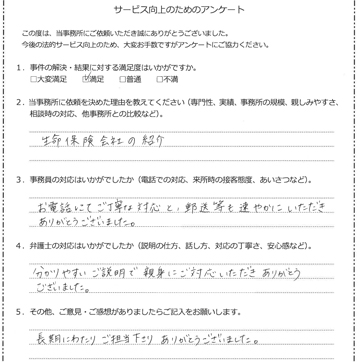 サービス向上のためのアンケート
この度は、当事務所にご依頼いただき誠にありがとうございました。
今後の法的サービス向上のため、大変お手数ですがアンケートにご協力ください。
1．事件の解決・結果に対する満足度はいかがですか。
□大変満足 ☑満足 □普通 □不満
2．当事務所に依頼を決めた理由を教えてください（専門性、実績、事務所の規模、親しみやすさ、
相談時の対応、他事務所との比較など）。
生命保険会社の紹介
3．事務員の対応はいかがでしたか（電話での対応、来所時の接客態度、あいさつなど）。
お電話にてご丁寧な対応と、郵送等も速やかにいただき
ありがとうございました。
4．弁護士の対応はいかがでしたか（説明の仕方、話し方、対応の丁寧さ、安心感など）。
分かりやすいご説明で親身にご対応いただきありがとう
ございました。
5．その他、ご意見・ご感想がありましたらご記入をお願いします。
長期にわたりご担当下さりありがとうございました。